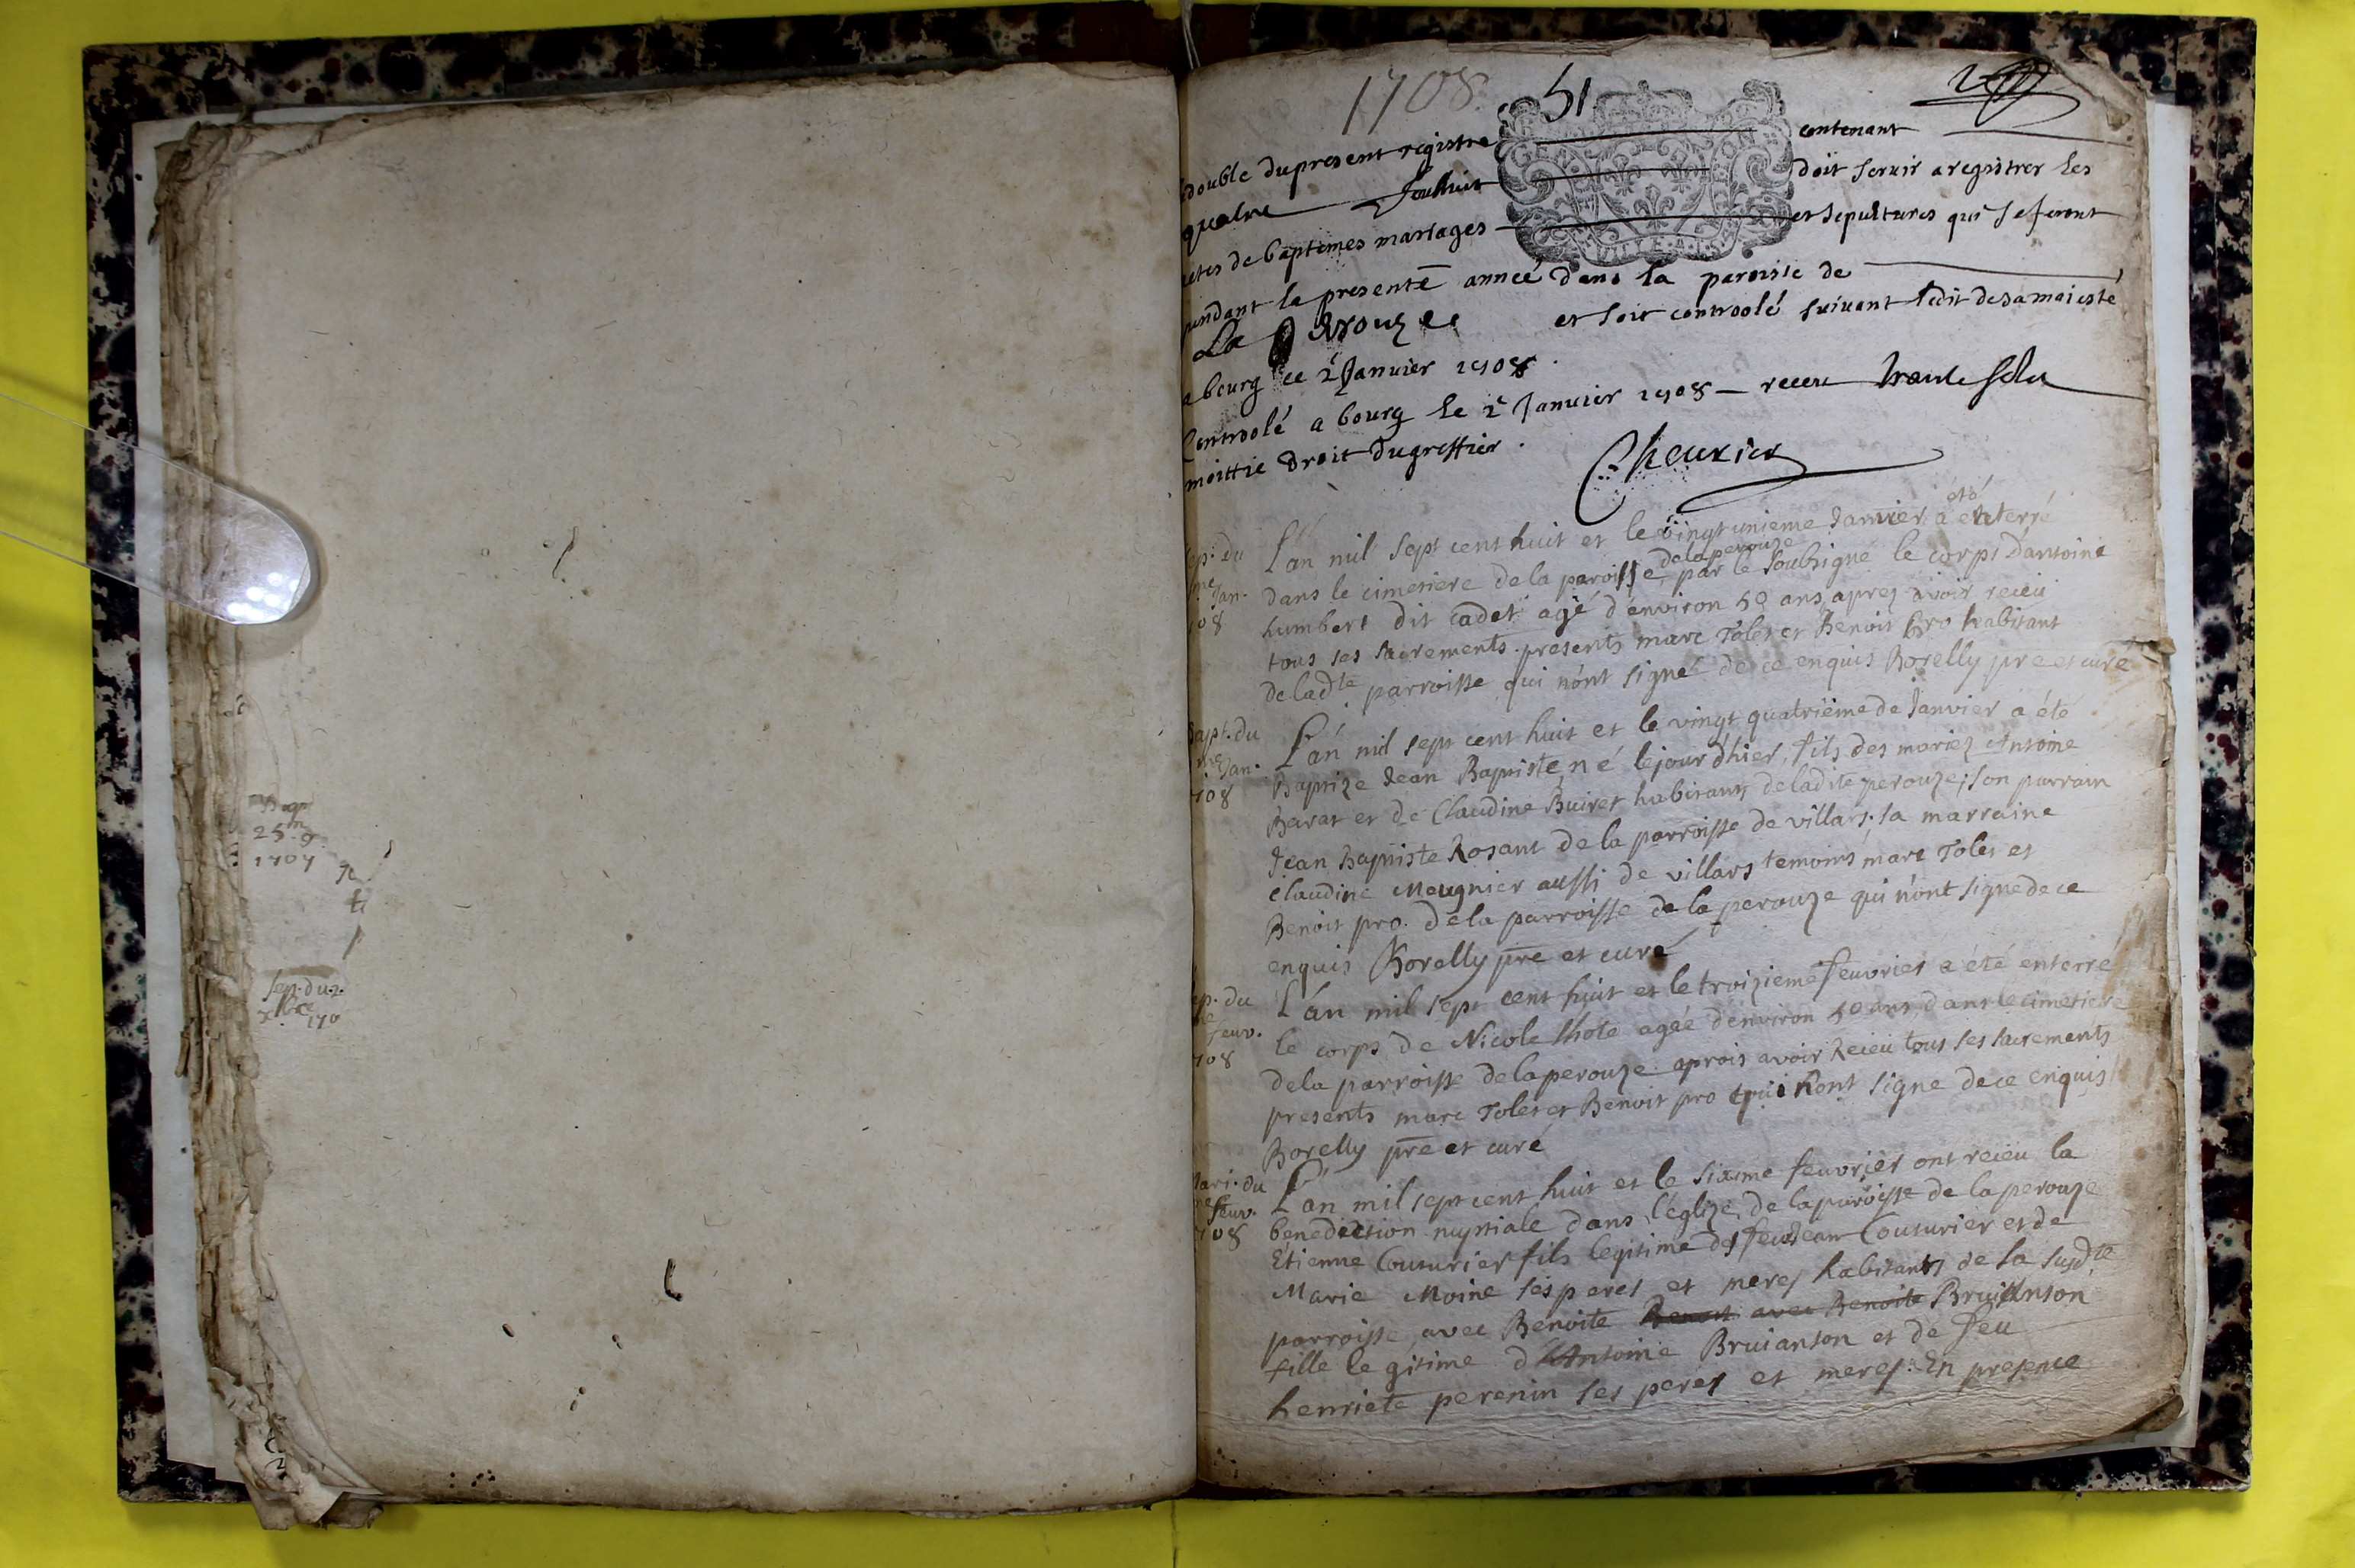 Bap
25 9
1707
Sep. du 2.
xbre 170
1708. 51
double du present registre contenant
quatre feuillets doit servir a registrer les
actes de baptemes mariages et sepultures qui se feront
pendant la presente année dans la paroisse de
La Perouze et soit controolé suivant ledit de sa maiesté
a bourg ce 2e Janvier 1708.
Controolé a bourg le 2e Janvier 1708 – receu trante sols
moittie droit du greffier.
Cheurier
Sep. du
me Jan.
708
L'an mil sept cent huit et le vingt unieme Janvier a été enterré
dans le cimetiere de la paroisse de la perouze par le soubsigné le corps d'antoine
humbert dit cadet agé d'environ 50 ans apres avoir receu
tous ses sacrements. presents marc Tolet et Benoit pro habitant
de lad.te parroisse qui n'ont signé de ce enquis Borelly pre et curé
Bapt. du
me Jan.
708
L'an mil sept cent huit et le vingt quatrième de Janvier a été
Baptize Jean Baptiste, né le jour d'hier, fils des mariez Antoine
Bavat et de Claudine Buiret habitants de ladite perouze; son parrain
Jean Baptiste Rosant de la parroisse de villars. sa marraine
Claudine Meugnier aussi de villars temoins marc Tolet et
Benoit pro. de la parroisse de la perouze qui n'ont signe de ce
enquis Borelly pre et curé
Sep. du
me feuv.
708
L'an mil sept cent huit et le troizieme feuvrier a été enterré
le corps de Nicole lhote agée d'environ 50 ans dans le cimetiere
de la parroisse de la perouze aprois avoir Receu tous ses sacrements
presents marc Tolet et Benoit pro qui n'ont signe de ce enquis
Borelly pre et curé
Mari. du
me feuv.
708
L'an mil sept cent huit et le sixsme feuvrier ont receu la
benediction nuptiale dans l'eglize de la paroisse de la perouze
Etienne Couturier fils legitime de feu Jean Couturier et de
Marie Moine ses peres et meres habitants de la susd.te
parroisse avec Benoite Benoit avec Benoite Bruianton
fille legitime d'Antoine Bruianton et de feu
henriete perenin ses peres et meres. En presence